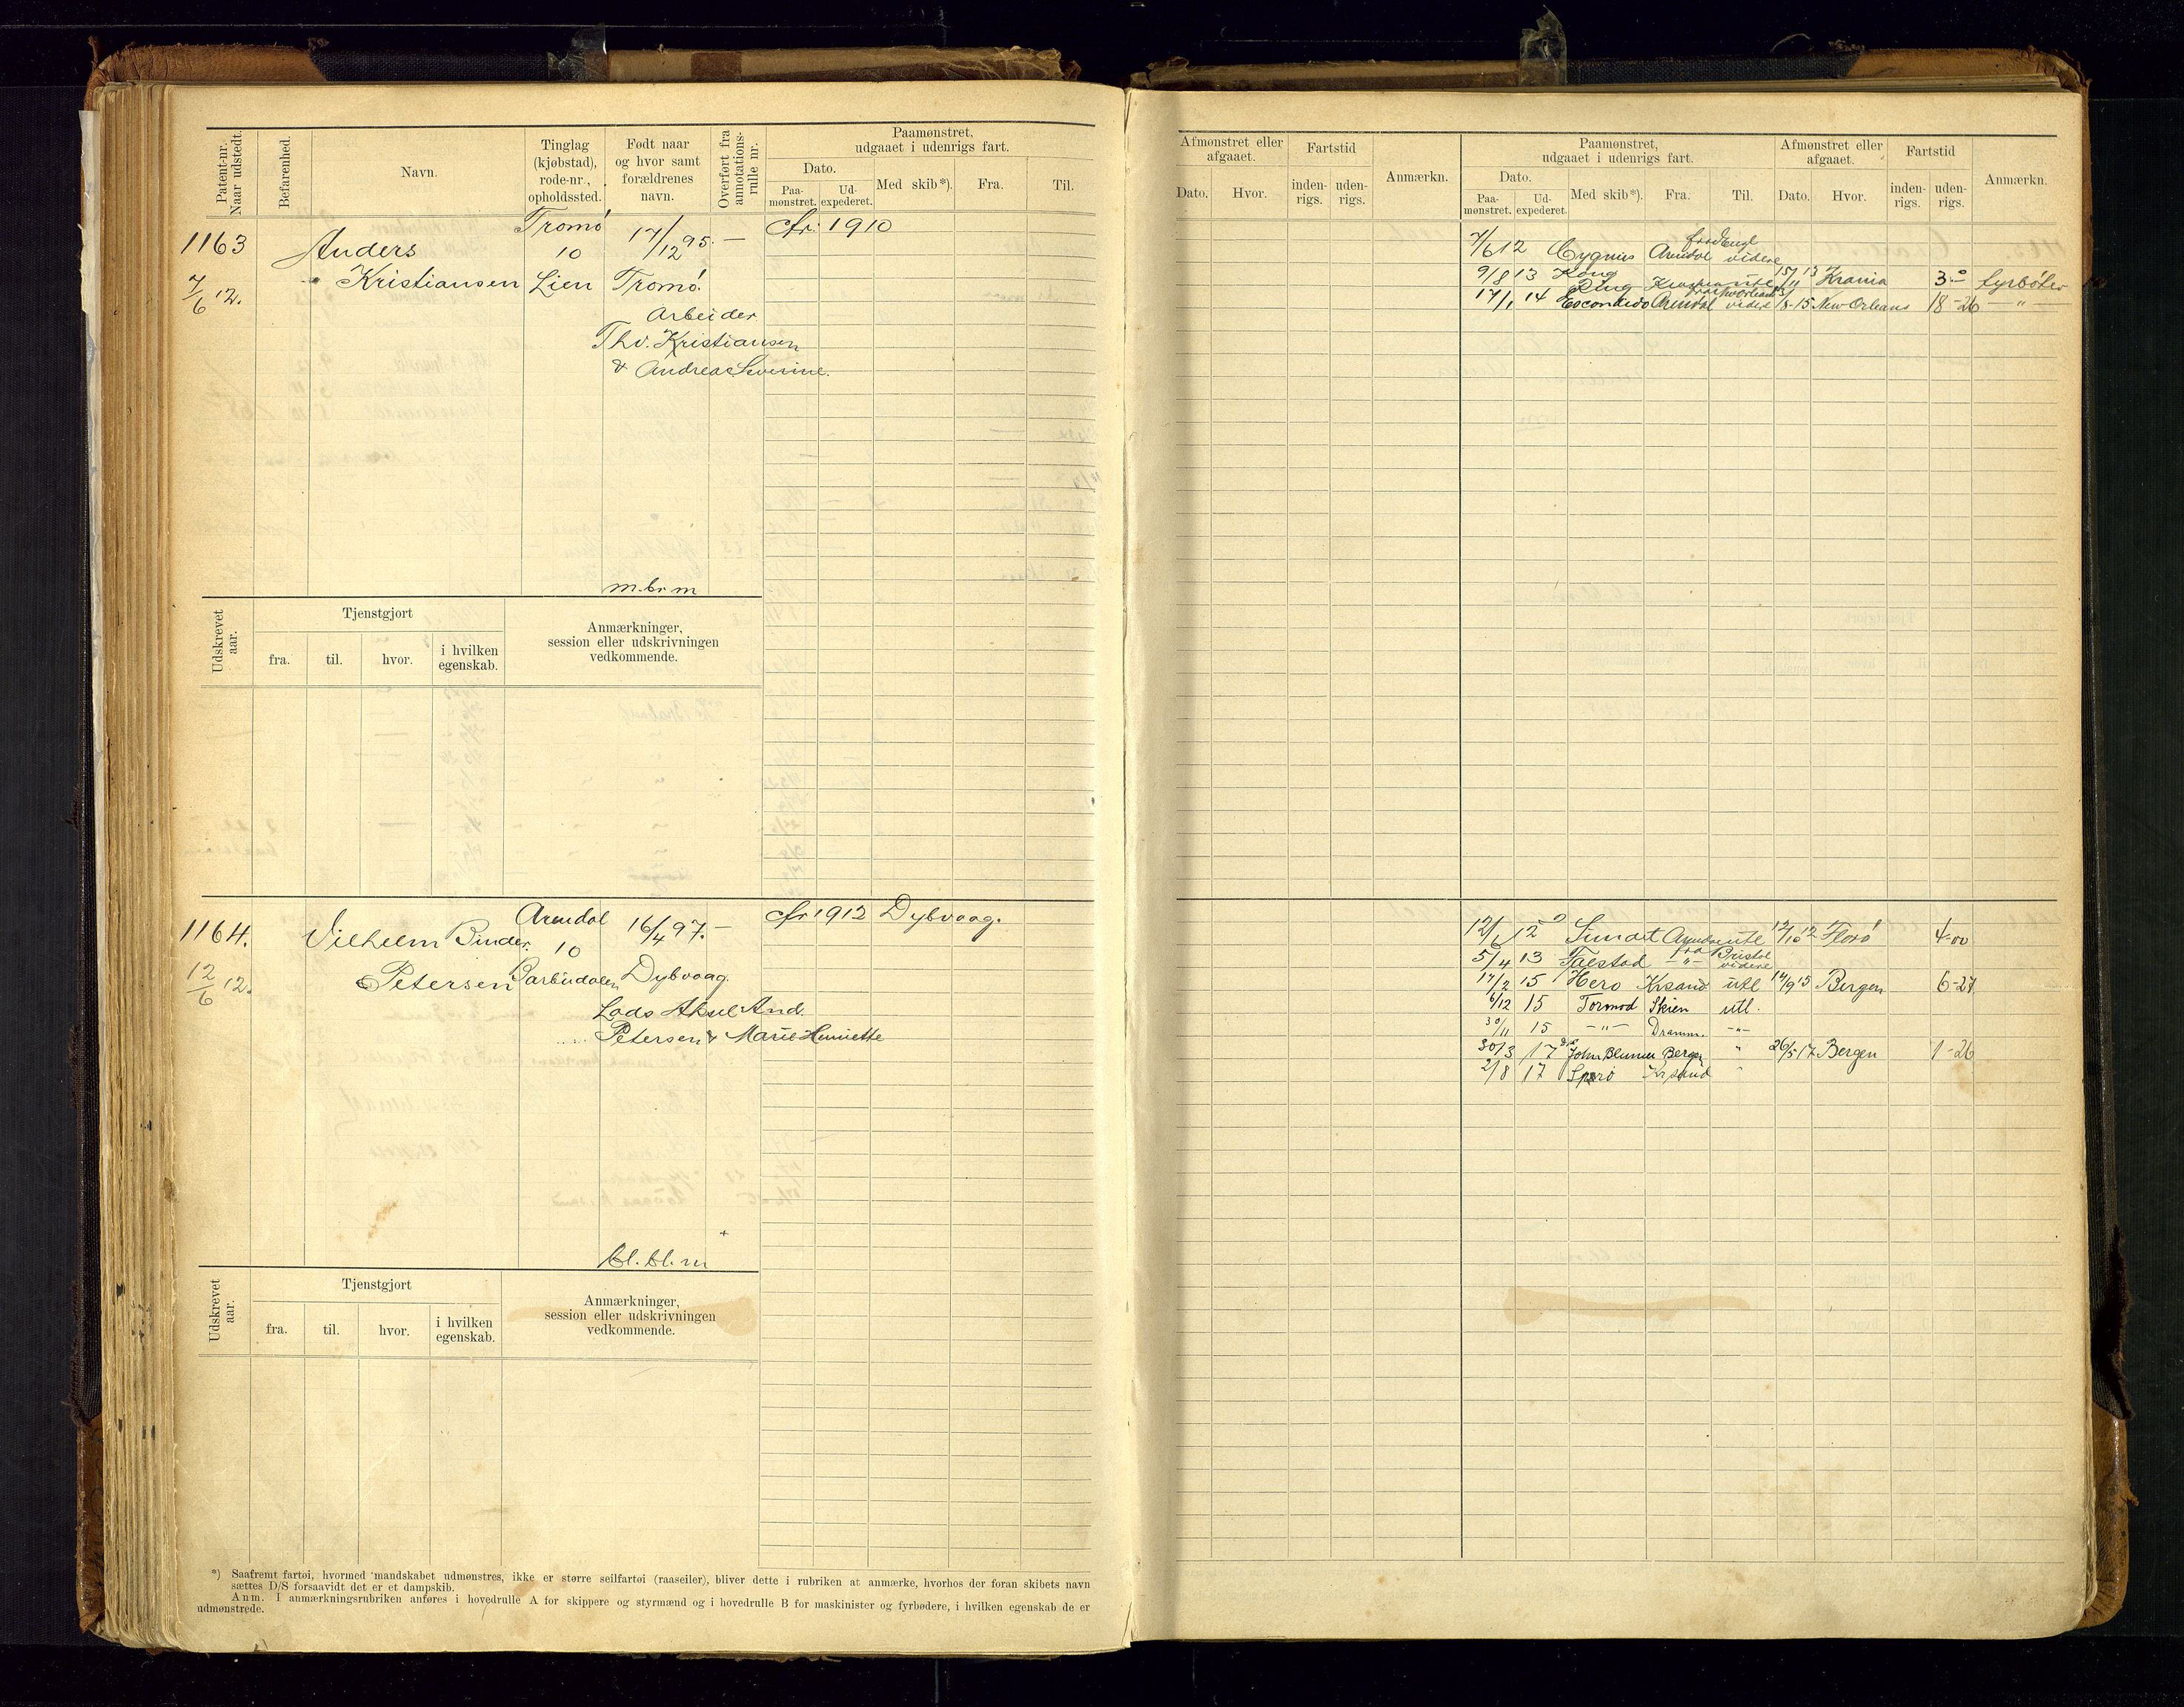 Patent-nr. Naar udstedt.
Befarenhed.
Navn.
Tinglag (kjøbstad), rode-nr., opholdssted.
Født naar og hvor samt forældrenes navn.
Overført fra annotations-rulle nr.
Paamønstret, udgaaet i udenrigs fart.
Dato.
Paa-mønstret.
Ud-expederet.
Med skib*).
Fra.
Til.
Tromø
fr. 1910
1163
Anders
10
17/12 95. —
Kristiansen
Lien
Tromø.
7/6 12.
Arbeider
Thv. Kristiansen
& Andrea Severine.
m. br. m
Udskrevet aar.
Tjenstgjort
fra.
til.
hvor.
i hvilken egenskab.
Anmærkninger, session eller udskrivningen vedkommende.
Arendal
fr 1912 Dybvaag.
1164.
Vilhelm Binder
10
16/4 97. —
12/6 12.
Petersen
Barbudalen
Dybvaag.
Lods Aksel And.
Petersen & Marie Henriette
bl. bl. m
Udskrevet aar.
Tjenstgjort
fra.
til.
hvor.
i hvilken egenskab.
Anmærkninger, session eller udskrivningen vedkommende.
*) Saafremt fartøi, hvormed mandskabet udmønstres, ikke er større seilfartøi (raaseiler), bliver dette i rubriken at anmærke, hvorhos der foran skibets navn
sættes D/S forsaavidt det er et dampskib.
Anm. I anmærkningsrubriken anføres i hovedrulle A for skippere og styrmænd og i hovedrulle B for maskinister og fyrbødere, i hvilken egenskab de er
udmønstrede.
Afmønstret eller afgaaet.
Dato.
Hvor.
Fartstid
inden-rigs.
uden-rigs.
Anmærkn.
Paamønstret, udgaaet i udenrigs fart.
Dato.
Paa-mønstret.
Ud-expederet.
Med skib*).
Fra.
Til.
Afmønstret eller afgaaet.
Dato.
Hvor.
Fartstid
inden-rigs.
uden-rigs.
Anmærkn.
7/6 12 Cygnus Arendal fra Engl videre
9/8 13 Kong Ring 15/11 13 Krania 3- fyrbøter
17/1 14 Escondido Arendal videre 15 New Orleans 18-26 — " —
12/6 12 Smart 12/10 12 Florø 4-00
5/4 13 Falstad — " — fra Bristol videre
17/2 15 Hero Krsand utl 14/9 15 Bergen 6-27
6/12 15 Tormod Skien utl.
30/11 15 — " — Dramm. — " —
30/3 17 John Blumer Bergen " 26/5 17 Bergen 1-26
2/8 17 Sperø Krsand "